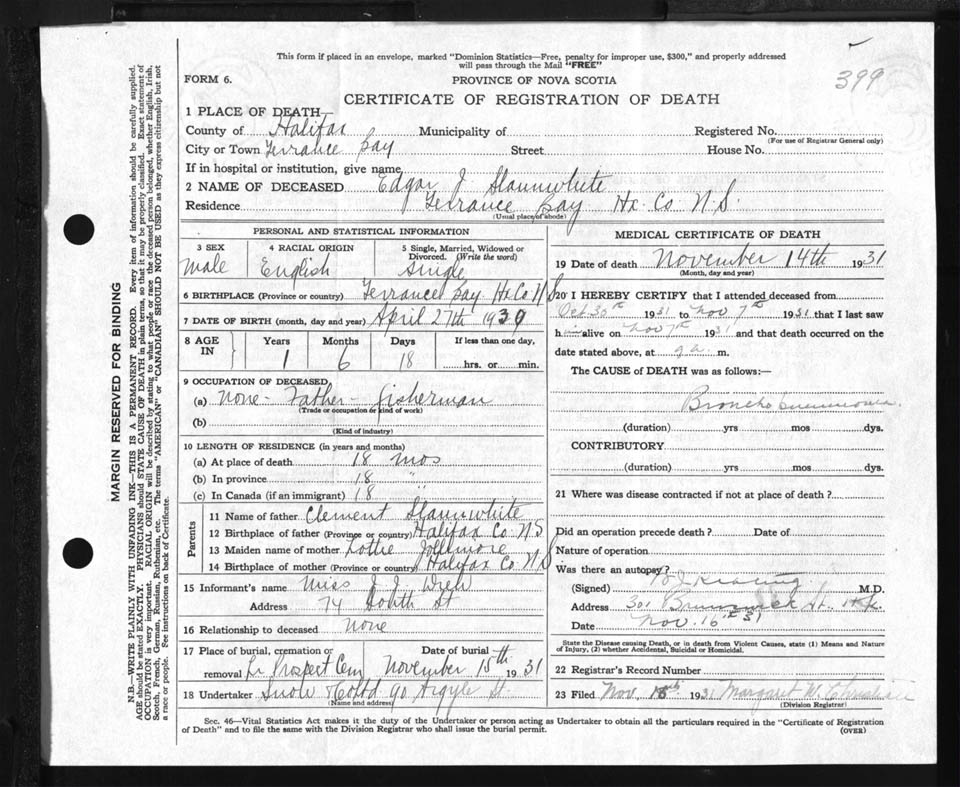 This form if placed in an envelope, marked "Dominion Statistics—Free, penalty for improper use, $300," and properly addressed
will pass through the Mail "FREE"
399
FORM 6.
PROVINCE OF NOVA SCOTIA
CERTIFICATE OF REGISTRATION OF DEATH
1 PLACE OF DEATH
County of Halifax Municipality of Registered No.
(For use of Registrar General only)
City or Town Terrance Bay Street House No.
If in hospital or institution, give name
2 NAME OF DECEASED Edgar J Slaunwhite
Residence Terrance Bay Hx Co N S.
(Usual place of abode)
PERSONAL AND STATISTICAL INFORMATION
3 SEX 4 RACIAL ORIGIN 5 Single, Married, Widowed or Divorced. (Write the word)
male English Single
6 BIRTHPLACE (Province or country) Terrance Bay Hx Co N S
7 DATE OF BIRTH (month, day and year) April 27th 1930
8 AGE IN Years Months Days If less than one day,
1 6 18 hrs. or min.
9 OCCUPATION OF DECEASED
(a) None - Father - fisherman
(Trade or occupation or kind of work)
(b)
(Kind of industry)
10 LENGTH OF RESIDENCE (in years and months)
(a) At place of death 18 mos
(b) In province 18 "
(c) In Canada (if an immigrant) 18 "
Parents
11 Name of father Clement Slaunwhite
12 Birthplace of father (Province or country) Halifax Co. N S
13 Maiden name of mother Lottie Jollimore
14 Birthplace of mother (Province or country) Halifax Co. N S
15 Informant's name Miss J. J. Drew
Address 74 South St
16 Relationship to deceased None
17 Place of burial, cremation or removal Lr Prospect Cem Date of burial November 15th 1931
18 Undertaker Snow & Co Ltd 90 Argyle St.
(Name and address)
MEDICAL CERTIFICATE OF DEATH
19 Date of death November 14th 1931
(Month, day and year)
20 I HEREBY CERTIFY that I attended deceased from
Oct 30th 1931 to Nov 7th 1931 that I last saw
him alive on Nov 7th 1931 and that death occurred on the
date stated above, at 9 a. m.
The CAUSE of DEATH was as follows:—
Broncho pneumonia.
(duration) yrs mos dys.
CONTRIBUTORY
(duration) yrs mos dys.
21 Where was disease contracted if not at place of death?
Did an operation precede death? Date of
Nature of operation
Was there an autopsy?
(Signed) Keating M.D.
Address 301 Brunswick St. Hfx.
Date Nov. 16th 31
State the Disease causing Death, or in death from Violent Causes, state (1) Means and Nature
of Injury, (2) whether Accidental, Suicidal or Homicidal.
22 Registrar's Record Number
23 Filed Nov. 1931 Margaret W.
(Division Registrar)
Sec. 46—Vital Statistics Act makes it the duty of the Undertaker or person acting as Undertaker to obtain all the particulars required in the "Certificate of Registration
of Death" and to file the same with the Division Registrar who shall issue the burial permit.
(OVER)
MARGIN RESERVED FOR BINDING
N.B.—WRITE PLAINLY WITH UNFADING INK—THIS IS A PERMANENT RECORD. Every item of information should be carefully supplied.
AGE should be stated EXACTLY. PHYSICIANS should STATE CAUSE OF DEATH in plain terms, so that it may be properly classified. Exact statement of
OCCUPATION is very important. RACIAL ORIGIN will be described by stating to what people or race the deceased person belonged, whether English, Irish,
Scotch, French, German, Russian, Ruthenian, etc. The terms "AMERICAN" or "CANADIAN" SHOULD NOT BE USED as they express citizenship but not
a race or people. See instructions on back of Certificate.